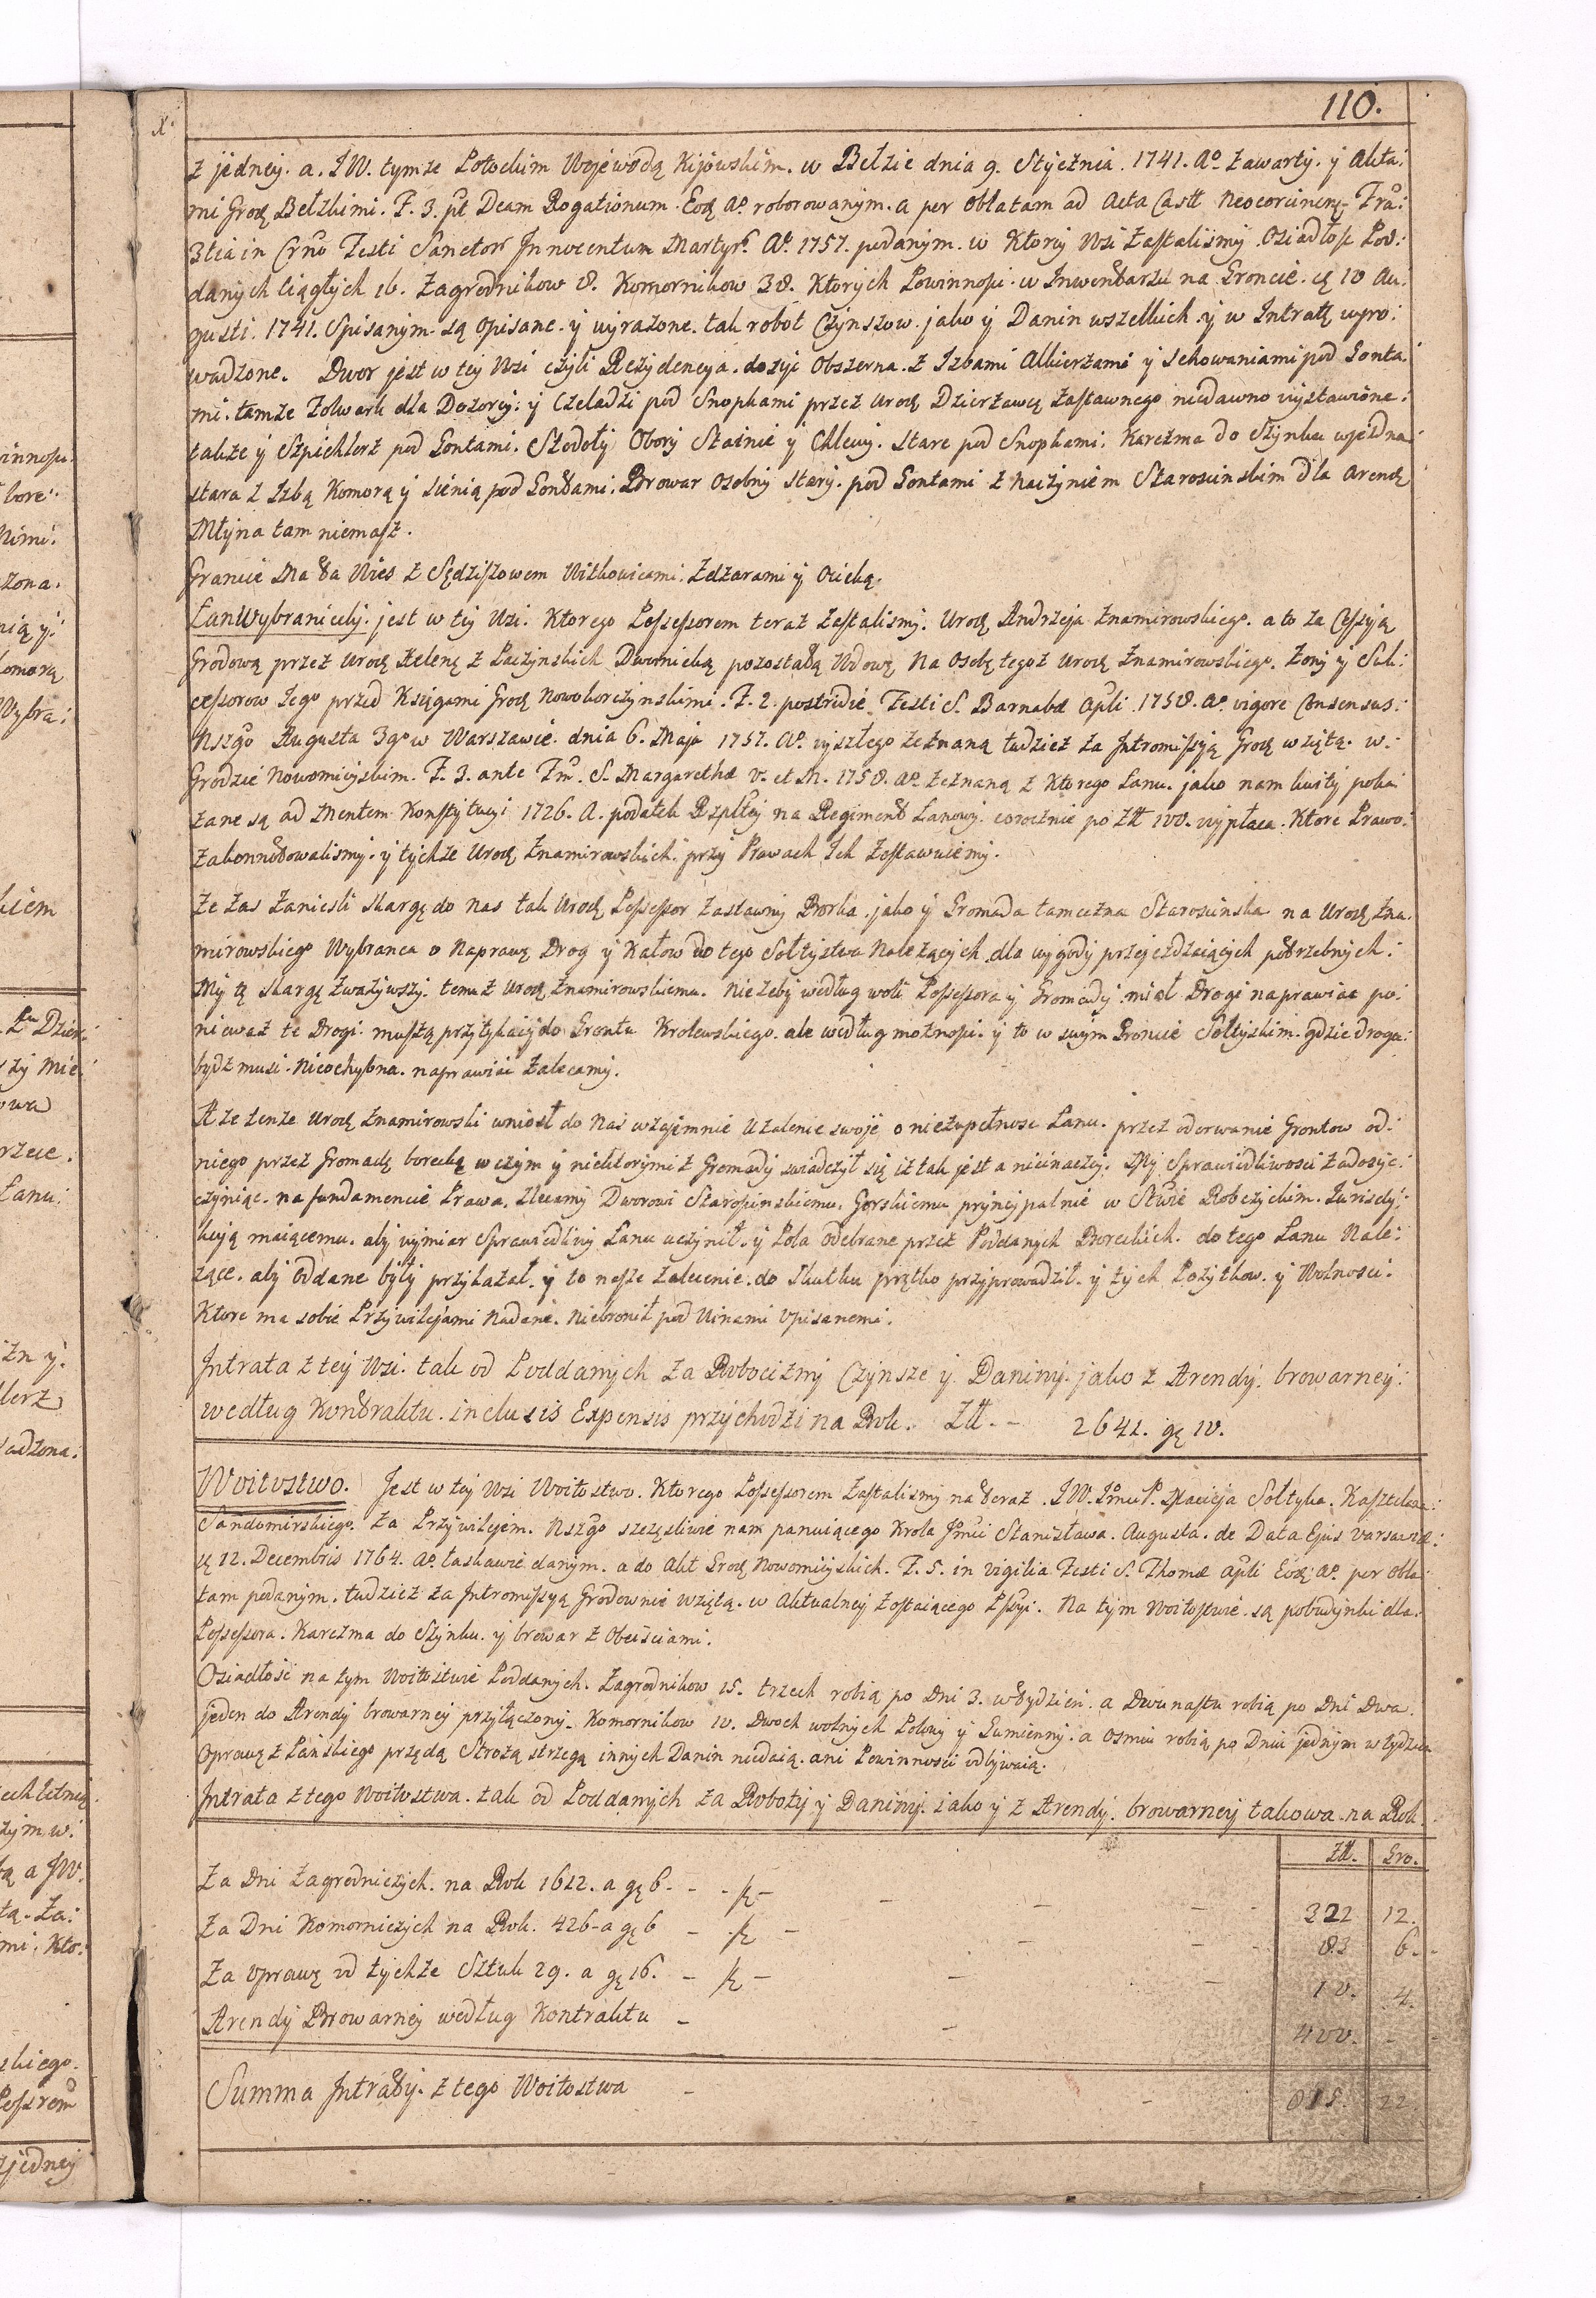 110.
z jedney. a. J.W. tymze Potockim Woiewodą Kijowskim. w Bełzie dnia 9. Stycznia. 1741. Aº zawarty. y Akta:
mi Grod Bełzkimi. F. 3. pt Dcam Rogationum. Eod Aº. roborowanym. a per oblatam ad Acta Castr Neocorcinen. Fra:
3tia in Crno Festi Sanctor Innocentum Martyr. Aº. 1757. podanym. w Ktorey Wsi zastalismy. Osiadłość Pod:
danych ciągłych 16. Zagrodnikow 8. Komornikow 38. Ktorych Powinności. w Inwentarzu na Groncie. 10 Au:
gusti. 1741. Spisanym. są opisane. y wyrazone. tak robot Czynszow. jako y Danin wszelkich. y w Intratę wpro:
wadzone. Dwor jest w tey Wsi czyli Rezydencya. dosyc Obszerna. z Izbami Alkierzami y schowaniami pod Gonta:
mi. tamze Folwark dla Dozorcy: y Czeladzi pod Snopkami przez Urod Dzierzawcę Zastawnego niedawno wystawione.
takze y Szpichlerz pod Gontami. Stodoły Obory Stainie y Chlewy. stare pod Snopkami. Karczma do Szynku wjezdna
stara z Izbą Komorą y sienią pod Gontami. Browar Osobny Stary. pod Gontami z naczyniem Staroscinskim dla Arendę
Młyna tam niemasz.
Granice Ma ta Wies z Sędziszowem Witkowicami. Zdzarami y Ocieką.
Łan Wybraniecky. jest w tey Wsi. Ktorego Possessorem teraz zastalismy. Urod Andrzeja Znamirowskiego. a to za Cessyją
Grodową przez Urod Helenę z Laczynskich Dwernicką pozostałą Wdowę. Na Osobę tegoz Urod Znamirowskiego. Zony y Suk:
cessorow Jego przed Księgami Grod Nowokorczynskimi. F. 2. postridie Festi S. Barnabæ Apli. 1758. Aº. vigore Consensus:
Nszgo Augusta 3go w Warszawie. dnia 6. Maja 1757. Aº. wyszłego zeznaną tudziez za Intromissyją Grod wziętą. w.
Grodzie Nowomieyskim. F. 3. ante Fm. S. Margarethæ V. et M. 1758. Aº. zeznaną z Ktorego Łanu. jako nam kwity poka:
zane są ad Mentem Konstytucyi 1726. A. podatek Rzpltey na Regiment Łanowy. corocznie po Złł 100. wypłaca. Ktore Prawo:
Zakonnotowalismy. y tychze Urod Znamirowskich. przy Prawach Ich zostawuiemy.
Ze zas zaniesli skargę do nas tak Urod Possessor Zastawny Borku. jako y Gromada tameczna Staroscinska na Urod Zna:
mirowskiego Wybranca o Naprawę Drog y Kałow do tego Sołtystwa Nalezących. dla wygody przejezdzaiących potrzebnych.
My tę skargę zwazywszy. temuz Urod Znamirowskiemu. Nie zeby według woli Possessora y Gromady. miał Drogi naprawiac po:
niewaz te Drogi. muszą przytykaią do Grontu Krolewskiego. ale według moznosci. y to w swym Groncie Sołtyskim. gdzie droga:
bydz musi. Nieochybna. naprawiac zalecamy.
A ze tenze Urod Znamirowski wniosł do Nas wzajemnie Uzalenie swoje o niezupełnosc Łanu. przez oderwanie Grontow od:
niego przez Gromadę borecką w czym y niektorymi z Gromady swiadczył się iz tak jest a nieinaczey. My Sprawiedliwosci zadosyc:
czyniąc. na fundamencie Prawa. Zlecamy Dworowi Staroscinskiemu. Gorskiemu pryncypalnie w Stwie Robczyckim. Jurisdy:
kcyą maiącemu. aby wymiar Sprawiedliwy Łanu uczynił. y Pola Odebrane przez Poddanych Boreckich. do tego Łanu Nale:
zące. aby oddane były przykazał. y to nasze zalecenie. do skutku prętko przyprowadził. y tych Pozytkow. y Wolnosci.
Ktore ma sobie Przywilejami Nadane. Niebronił pod Winami Opisanemi.
Intrata z tey Wsi. tak od Poddanych za Robocizny Czynsze y. Daniny. jako z Arendy. browarney.
według Kontraktu. inclusis Expensis przychodzi na Rok. Złł. - 2641. gę 10.
Woitostwo. Jest w tey Wsi Woitostwo. Ktorego Possessorem zastalismy na teraz. J.W. Jmci P. Macieja Sołtyka. Kasztelana:
Sandomirskiego. za Przywilejem. Nszgo szczęsliwie nam panuiącego Krola Jmci Stanisława. Augusta. de Data Ejus Varsaviæ:
12. Decembris 1764. Aº. łaskawie danym. a do Akt Grod Nowomieyskich. F. 5. in Vigilia Festi S. Thomæ Apli Eod Aº. per obla:
tam podanym. tudziez za Intromissyą Grodownie wziętą. w Aktualney zostaiącego Pssyi. Na tym Woitostwie. są pobudynki dla.
Possessora. Karczma do Szynku. y browar z Obeisciami.
Osiadłość na tym Woitostwie Poddanych. Zagrodnikow 15. trzech robią po Dni 3. w tydzien. a Dwunastu robią po Dni Dwa.
jeden do Arendy browarney przyłączony. Komornikow 10. Dwoch wolnych Polowy y Gumienny. a Osmiu robią po Dniu jednym w tydzien
Oprawę z Pańskiego przędą Strozą strzegą innych Danin niedaią. ani Powinnosci odbywaią.
Intrata z tego Woitostwa. tak od Poddanych za Roboty y Daniny. iako y z Arendy. browarney takowa na Rok.
Złł. Gro.
Za Dni Zagrodniczych. na Rok 1612. a gę 6. - 322 12.
Za Dni Komorniczych na Rok. 426 - a gę 6 - 83 6.
Za Oprawę od tychze Sztuk 29. a gę 16. - 10. 4.
Arendy Browarney według Kontraktu - 400. -
Summa Intraty. z tego Woitostwa - 815. 22.